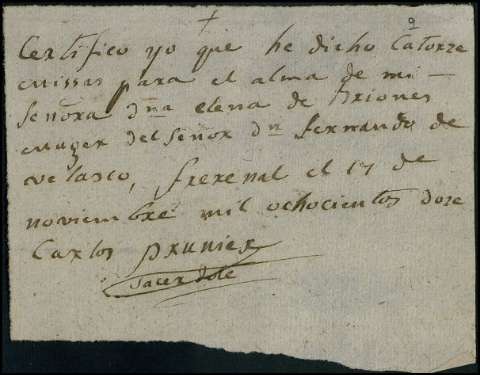 + 9
Certifico yo que he dicho Catorze
missas para el alma de mi
Señora Dña elena de Briones
muger del Señor Dn fernando de
velasco, frexenal el 17 de
noviembre mil ochocientos doze
Carlos prunier
Sacerdote